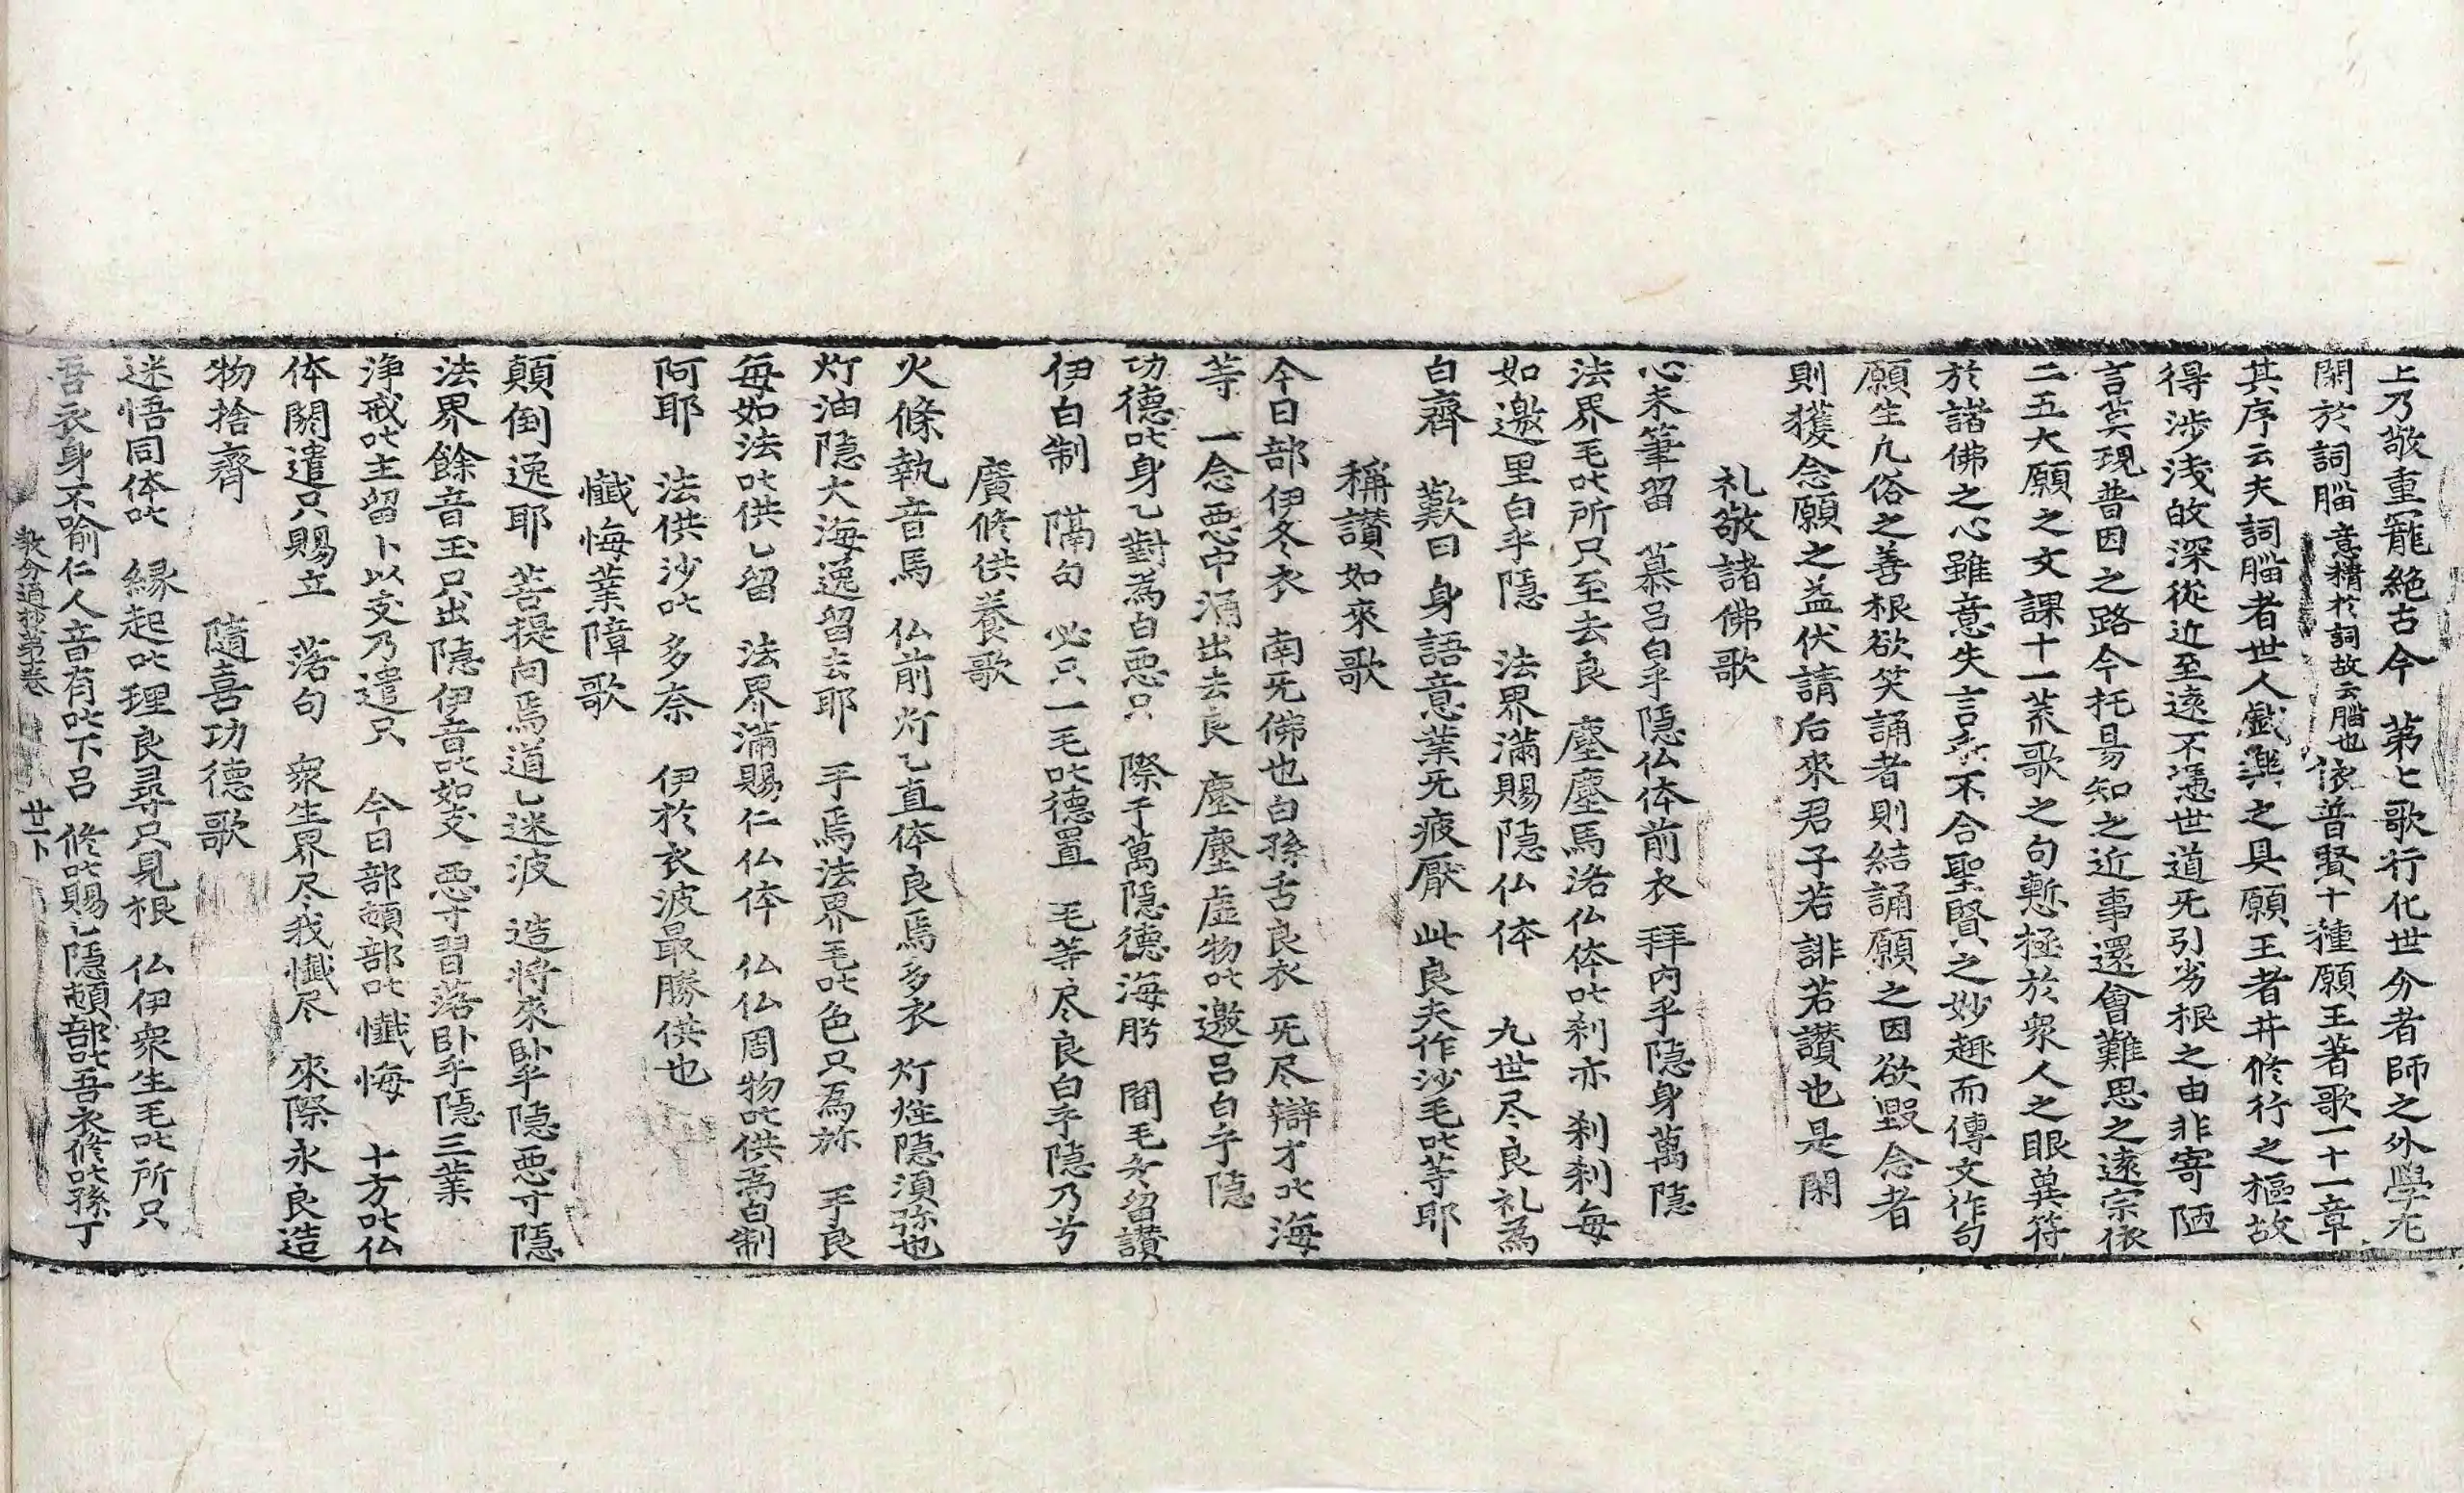 上乃敬重寵絶古今　第七歌行化世分者師之外學尤
閑於詞腦意精於詞故云腦也依普賢十種願王著歌一十一章
其序云夫詞腦者世人戱樂之具願王者并修行之樞故
得涉淺故深從近至遠不憑世道旡引劣根之由非寄陋
言莫現普因之路今托易知之近事還會難思之遠宗依
二五大願之文課十一荒歌之句慙極於衆人之眼冀符
於諸佛之心雖意失言不合聖賢之妙趣而傳文作句
願生凡俗之善根欲笑誦者則結誦願之因欲毀念者
則獲念願之益伏請后來君子若誹若讃也是閑
礼敬諸佛歌
心未筆留　慕呂白乎隱仏体前衣　拜內乎隱身萬隱
法界毛叱所只至去良　塵塵馬洛仏体叱刹亦　刹刹每
如邀里白乎隱　法界滿賜隱仏体　九世尽良礼為
白齊　歎曰　身語意業旡疲厭　此良夫作沙毛叱等耶
稱讃如來歌
今日部伊冬衣　南旡佛也白孫舌良衣　旡尽辯才叱海
等　一念悪中涌出去良　塵塵虛物叱邀呂白乎隱
功德叱身乙對為白悪只　際于萬隱德海肹　間毛冬留讃
伊白制　隔句　必只一毛叱德置　毛等尽良白乎隱乃兮
廣修供養歌
火條執音馬　仏前灯乙直体良焉多衣　灯炷隱須弥也
灯油隱大海逸留去耶　手焉法界毛叱色只為㫆　手良
每如法叱供乙留　法界滿賜仁仏体　仏仏周物叱供為白制
阿耶　法供沙叱多奈　伊於衣波最勝供也
懺悔業障歌
顛倒逸耶　菩提向焉道乙迷波　造將來臥乎隱悪寸隱
法界餘音玉只出隱伊音叱如支　悪寸習落臥乎隱三業
淨戒叱主留卜以支乃遣只　今日部頓部叱懺悔　十方叱仏
体閼遣只賜立　落句　衆生界尽我懺尽　來際永良造
物捨齊
隨喜功德歌
迷悟同体叱　縁起叱理良尋只見根　仏伊衆生毛叱所只
吾衣身不喻仁人音有叱下呂　修叱賜乙隱頓部叱吾衣修叱孫丁